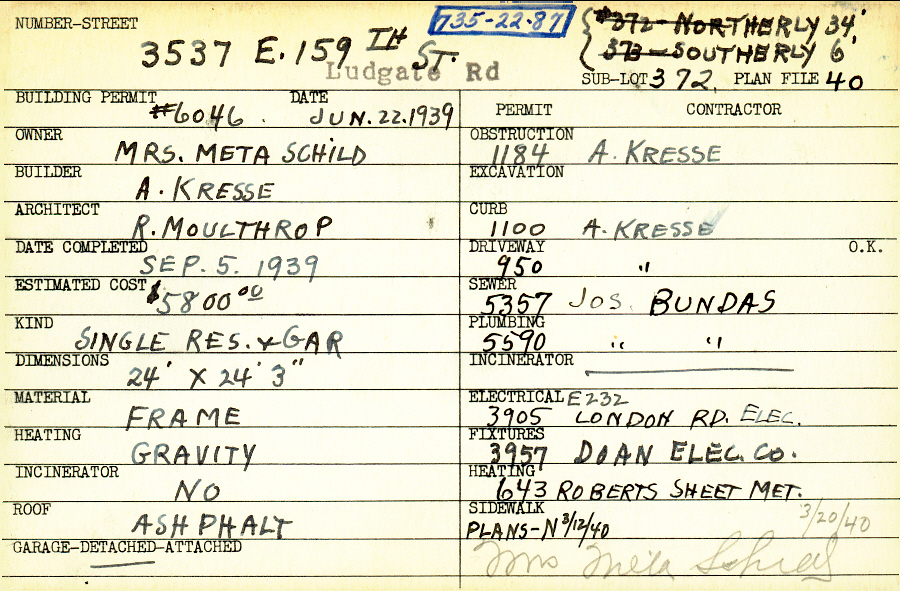 NUMBER-STREET
735-22-87
#372 - NORTHERLY 34'
373 - SOUTHERLY 6'
3537 E. 159 TH ST.
Ludgate Rd
SUB-LOT 372, PLAN FILE 40
BUILDING PERMIT DATE
#6046. JUN. 22. 1939
OWNER
MRS. META SCHILD
BUILDER
A. KRESSE
ARCHITECT
R. MOULTHROP
DATE COMPLETED
SEP. 5. 1939
ESTIMATED COST
$5800.00
KIND
SINGLE RES. & GAR
DIMENSIONS
24' X 24' 3"
MATERIAL
FRAME
HEATING
GRAVITY
INCINERATOR
NO
ROOF
ASHPHALT
GARAGE-DETACHED-ATTACHED
PERMIT CONTRACTOR
OBSTRUCTION
1184 A. KRESSE
EXCAVATION
CURB
1100 A. KRESSE
DRIVEWAY O.K.
950 "
SEWER
5357 JOS. BUNDAS
PLUMBING
5590 " "
INCINERATOR
ELECTRICAL E232
3905 LONDON RD. ELEC.
FIXTURES
3957 DOAN ELEC. CO.
HEATING
643 ROBERTS SHEET MET.
SIDEWALK
PLANS-N 3/12/40 3/20/40
Mrs Meta Schild